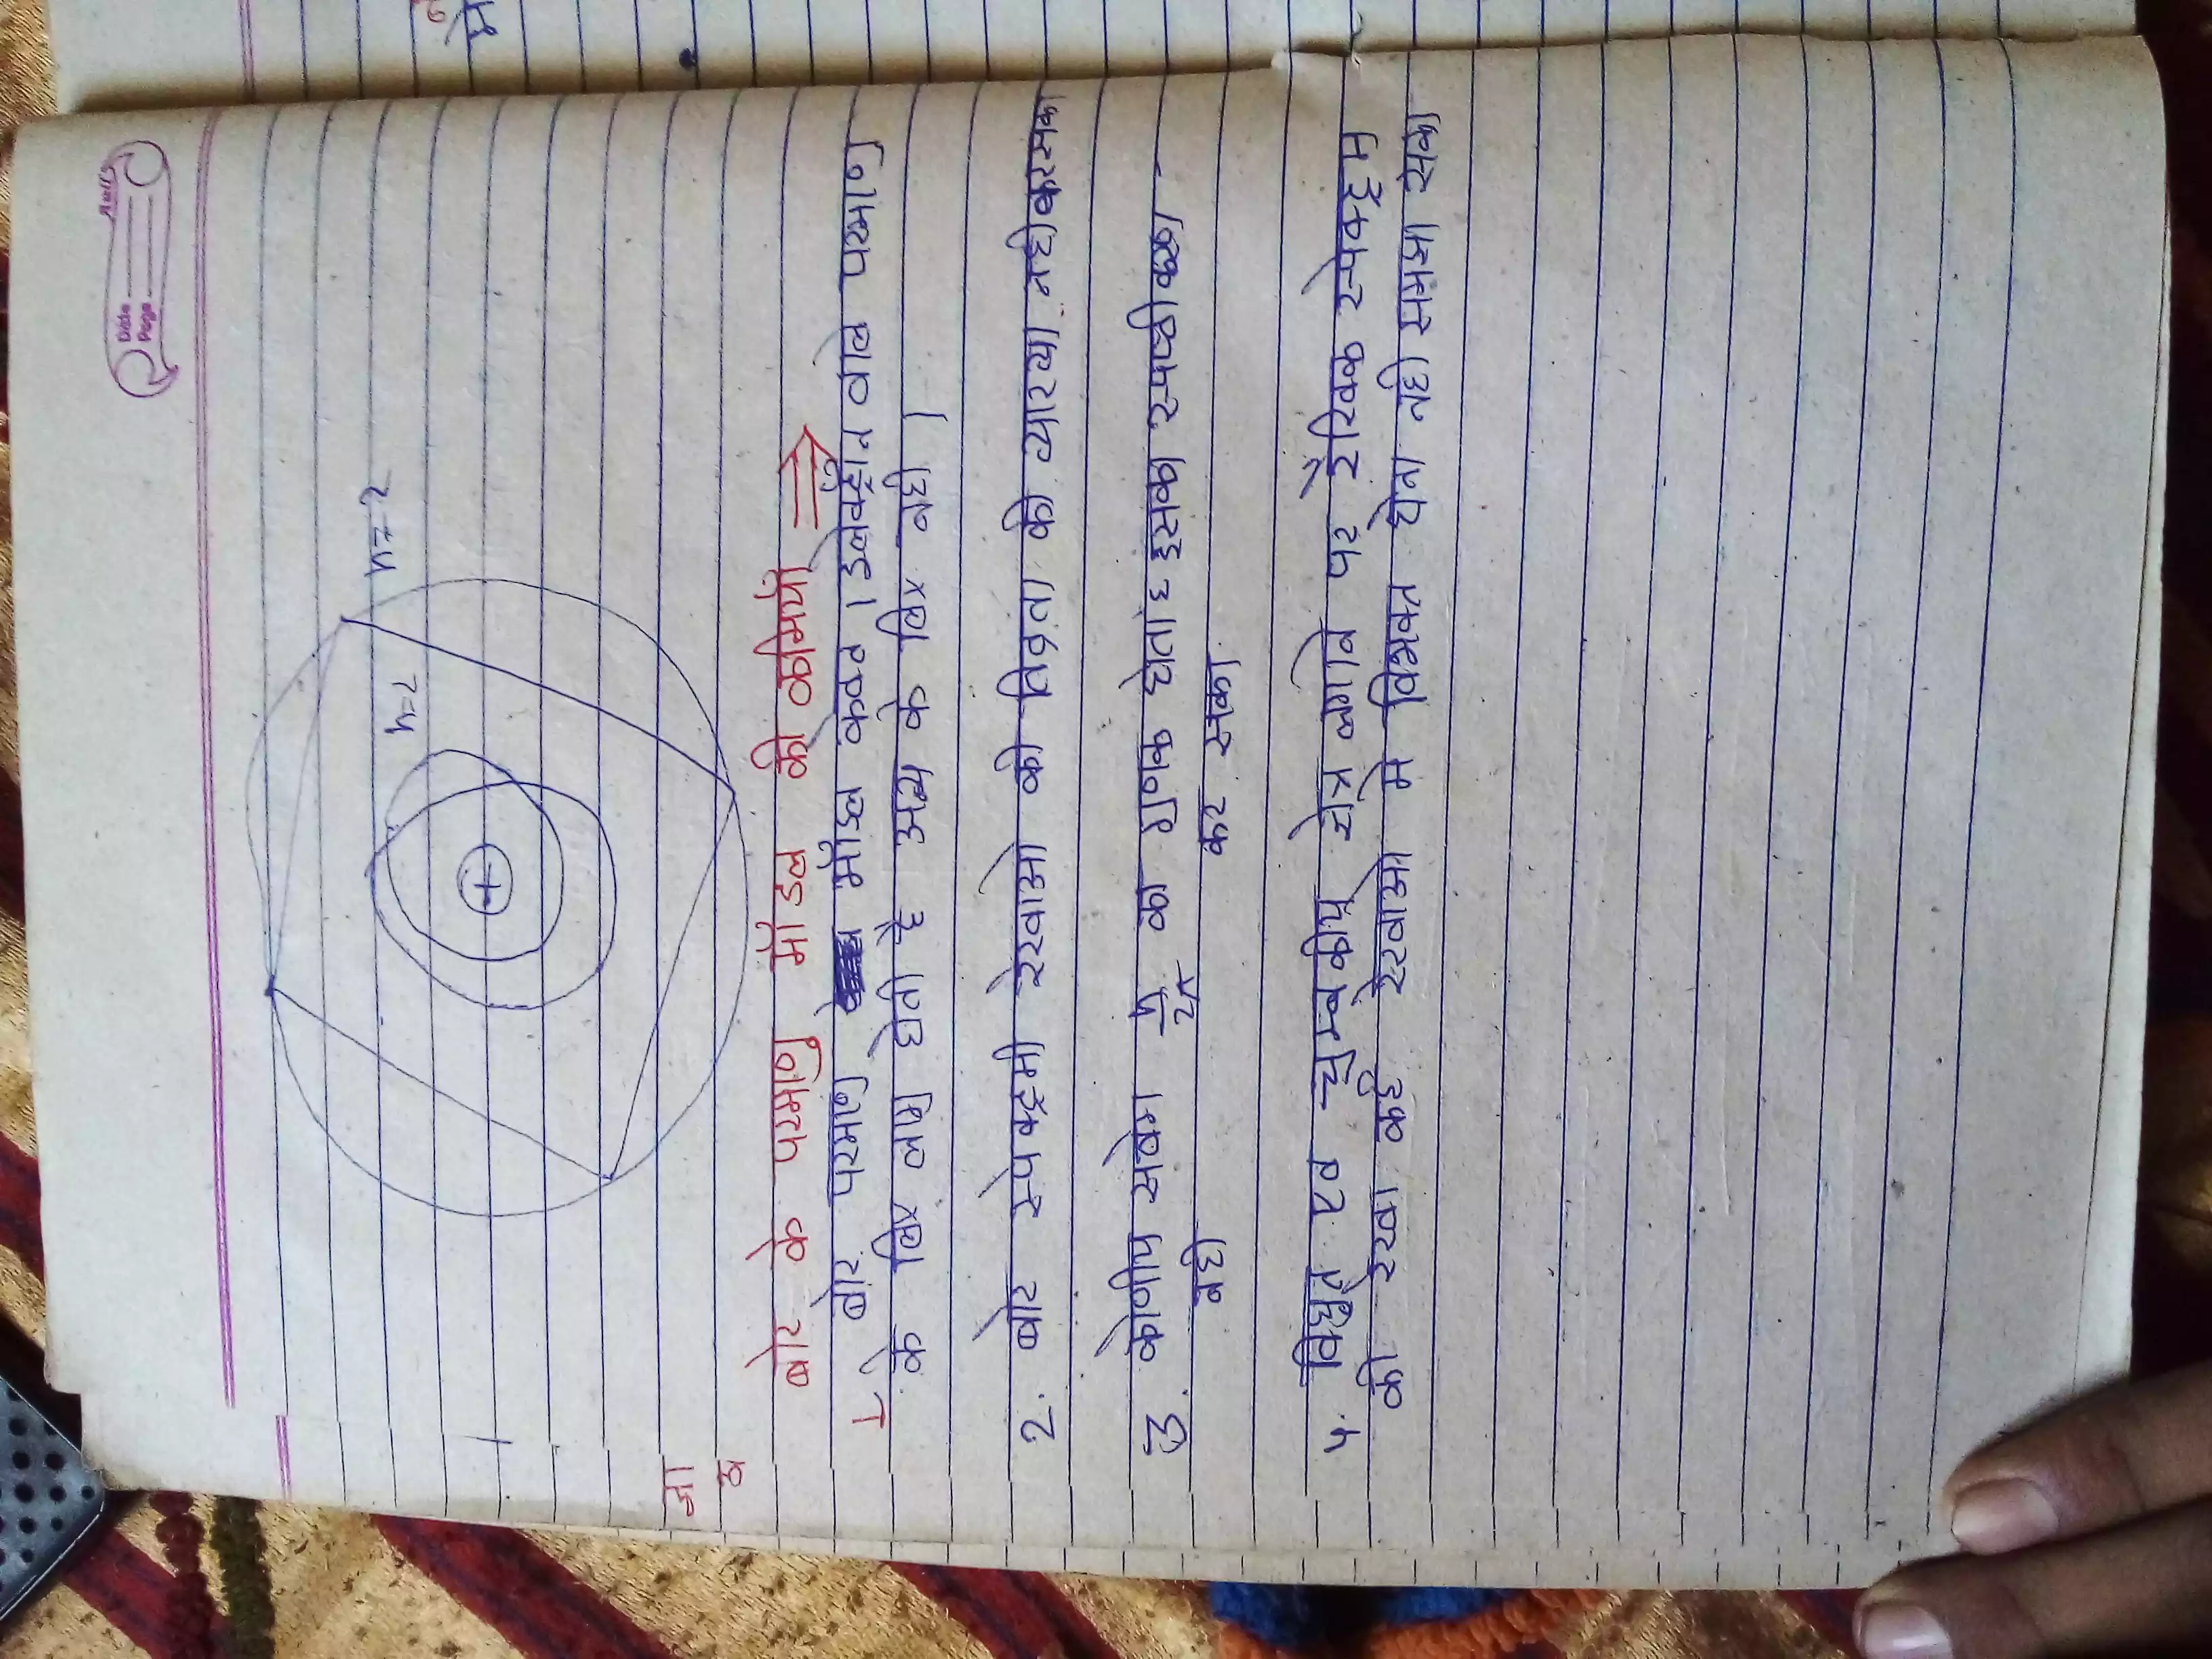 Date
Page
n=2
n=2
बोर के परमाणु मॉडल की कमियाँ ⇒
1 बोर परमाणु मॉडल केवल 1 इलेक्ट्रॉन वाले परमाणु
के लिए लागु होती है अन्य के लिए नही ।
2. बोर स्पेक्ट्रमी रेखाओ की तिव्रता की व्याख्या नही कर सका
3. कोणीय संवेग h/2π का गुणक होता है इसका स्पष्टीकरण -
नही कर सका
4. विद्युत एवं चुम्बकीय क्षेत्र लगाने पर रैखिक स्पेक्ट्रम
की रेखा कई रेखाओ मे विभक्त होना नही समझा सका